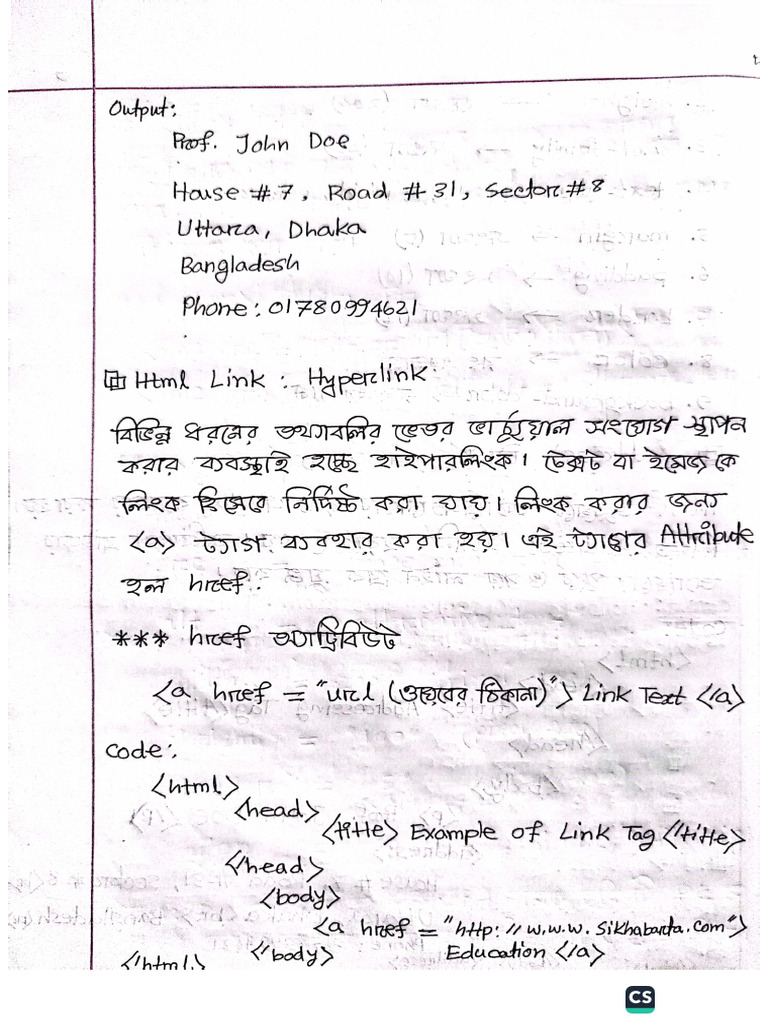 Output:
Prof. John Doe
House #7, Road #31, Sector #8
Uttara, Dhaka
Bangladesh
Phone: 01780994621
Html Link: Hyperlink
বিভিন্ন ধরনের তথ্যাবলির ভেতর ভার্চুয়াল সংযোগ স্থাপন
করার ব্যবস্থাই হচ্ছে হাইপারলিংক। টেক্সট বা ইমেজ কে
লিংক হিসেবে নির্দিষ্ট করা যায়। লিংক করার জন্য
<a> ট্যাগ ব্যবহার করা হয়। এই ট্যাগের Attribute
হল href.
*** href অ্যাট্রিবিউট
<a href = "url (ওয়েবের ঠিকানা)"> Link Text </a>
Code:
<html>
<head>
<title> Example of Link Tag </title>
</head>
<body>
<a href = "http://w.w.w.Sikhabarta.com">
Education </a>
</body>
</html>
CS